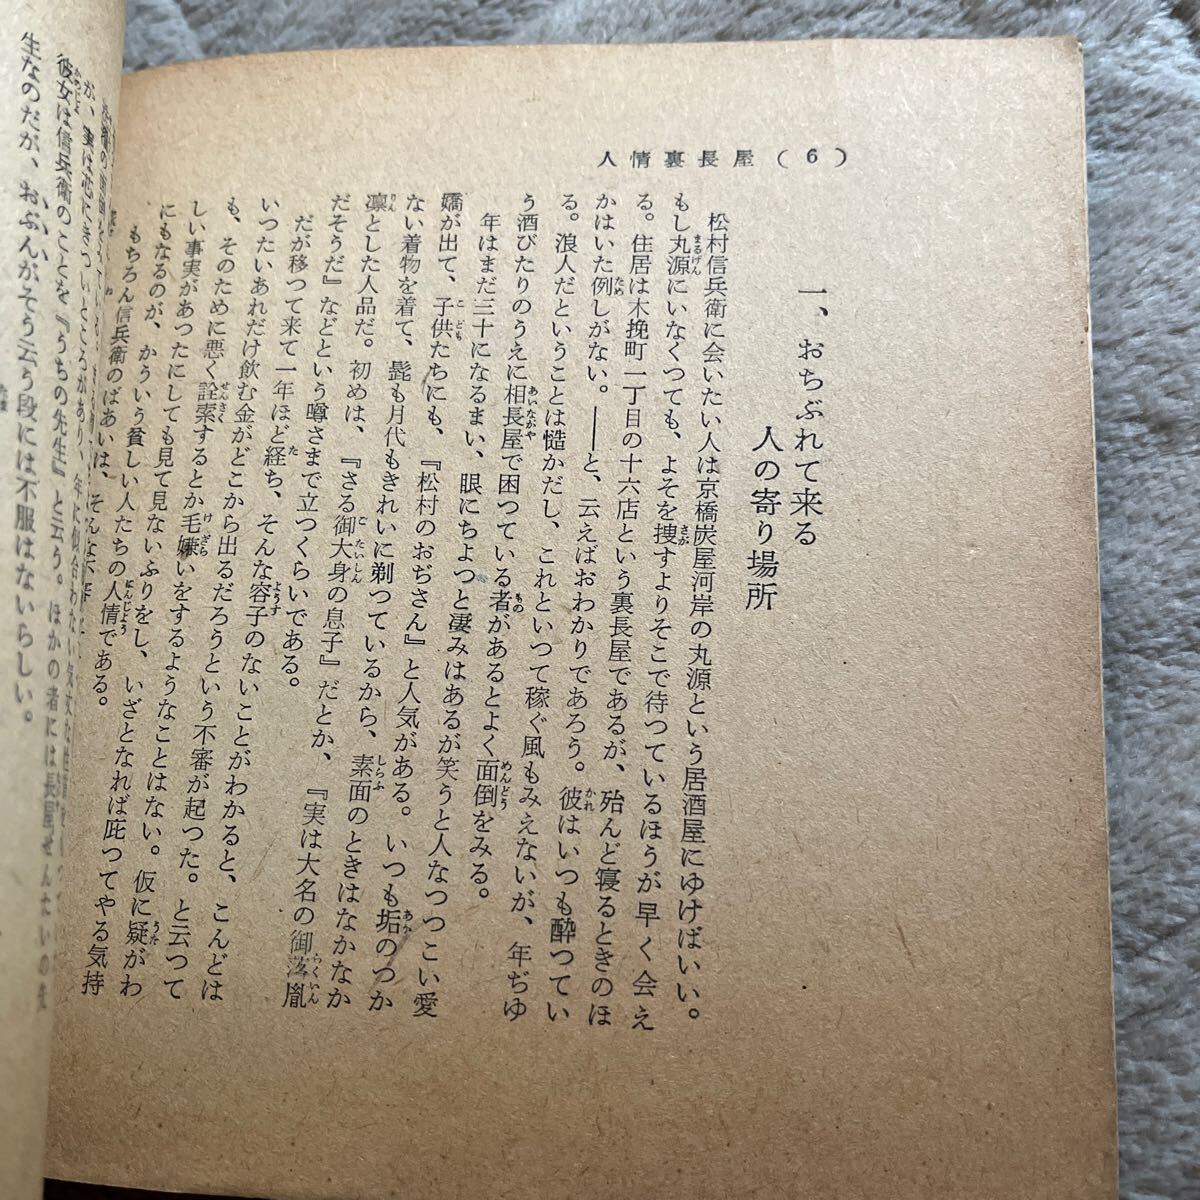 人情裏長屋(6)
一、おちぶれて来る
人の寄り場所
松村信兵衛に会いたい人は京橋炭屋河岸の丸源という居酒屋にゆけばいい。
もし丸源にいなくつても、よそを捜すよりそこで待つているほうが早く会え
る。住居は木挽町一丁目の十六店という裏長屋であるが、殆んど寝るときのほ
かはいた例しがない。――と、云えばおわかりであろう。彼はいつも酔つてい
る。浪人だということは慥かだし、これといつて稼ぐ風もみえないが、年ぢゆ
う酒びたりのうえに相長屋で困つている者があるとよく面倒をみる。
年はまだ三十になるまい、眼にちよつと凄みはあるが笑うと人なつつこい愛
嬌が出て、子供たちにも、『松村のおぢさん』と人気がある。いつも垢のつか
ない着物を着て、髭も月代もきれいに剃つているから、素面のときはなかなか
凛とした人品だ。初めは、『さる御大身の息子』だとか、『実は大名の御落胤
だそうだ』などという噂さまで立つくらいである。
だが移つて来て一年ほど経ち、そんな容子のないことがわかると、こんどは
いつたいあれだけ飲む金がどこから出るだろうという不審が起つた。と云つて
も、そのために悪く詮索するとか毛嫌いをするようなことはない。仮に疑がわ
しい事実があつたにしても見て見ないふりをし、いざとなれば庇つてやる気持
にもなるのが、かういう貧しい人たちの人情である。
もちろん信兵衛のばあいは、そんな
が、実は芯にきついところがあり、年に似合わない
彼女は信兵衛のことを『うちの先生』と云う。ほかの者には長屋ぜんたいの先
生なのだが、おぶんがそう云う段には不服はないらしい。